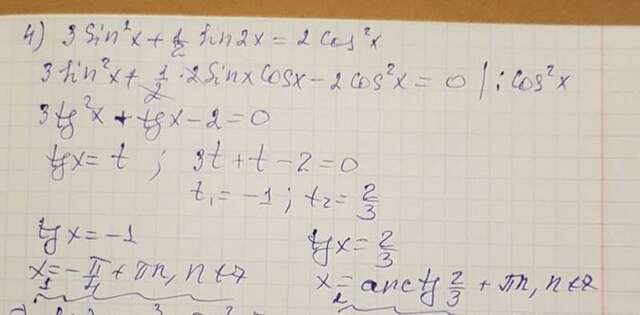 4) 3 sin²x + 1/2 sin2x = 2 cos²x
3 sin²x + 1/2 · 2 sinx cosx - 2 cos²x = 0 | : cos²x
3tg²x + tgx - 2 = 0
tgx = t ; 3t + t - 2 = 0
t₁ = -1 ; t₂ = 2/3
tgx = -1 tgx = 2/3
x₁ = -π/4 + πn, n∈Z x₂ = arctg 2/3 + πn, n∈Z